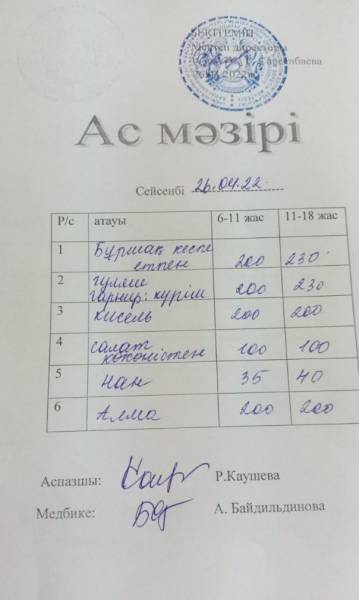 БЕКІТЕМІН
Мектеп директоры
Ас мәзірі
Сейсенбі 26.04.22
Р/с атауы 6-11 жас 11-18 жас
1 Бұршақ кеспе
етпен 200 230
2 гуляш
гарнир: күріш 200 230
3 кисель 200 200
4 салат
көкөністен 100 100
5 нан 35 40
6 Алма 200 200
Аспазшы: Р.Каушева
Медбике: А. Байдильдинова